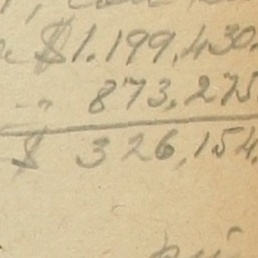 $1.199,430.
873.275.
$ 326,154.